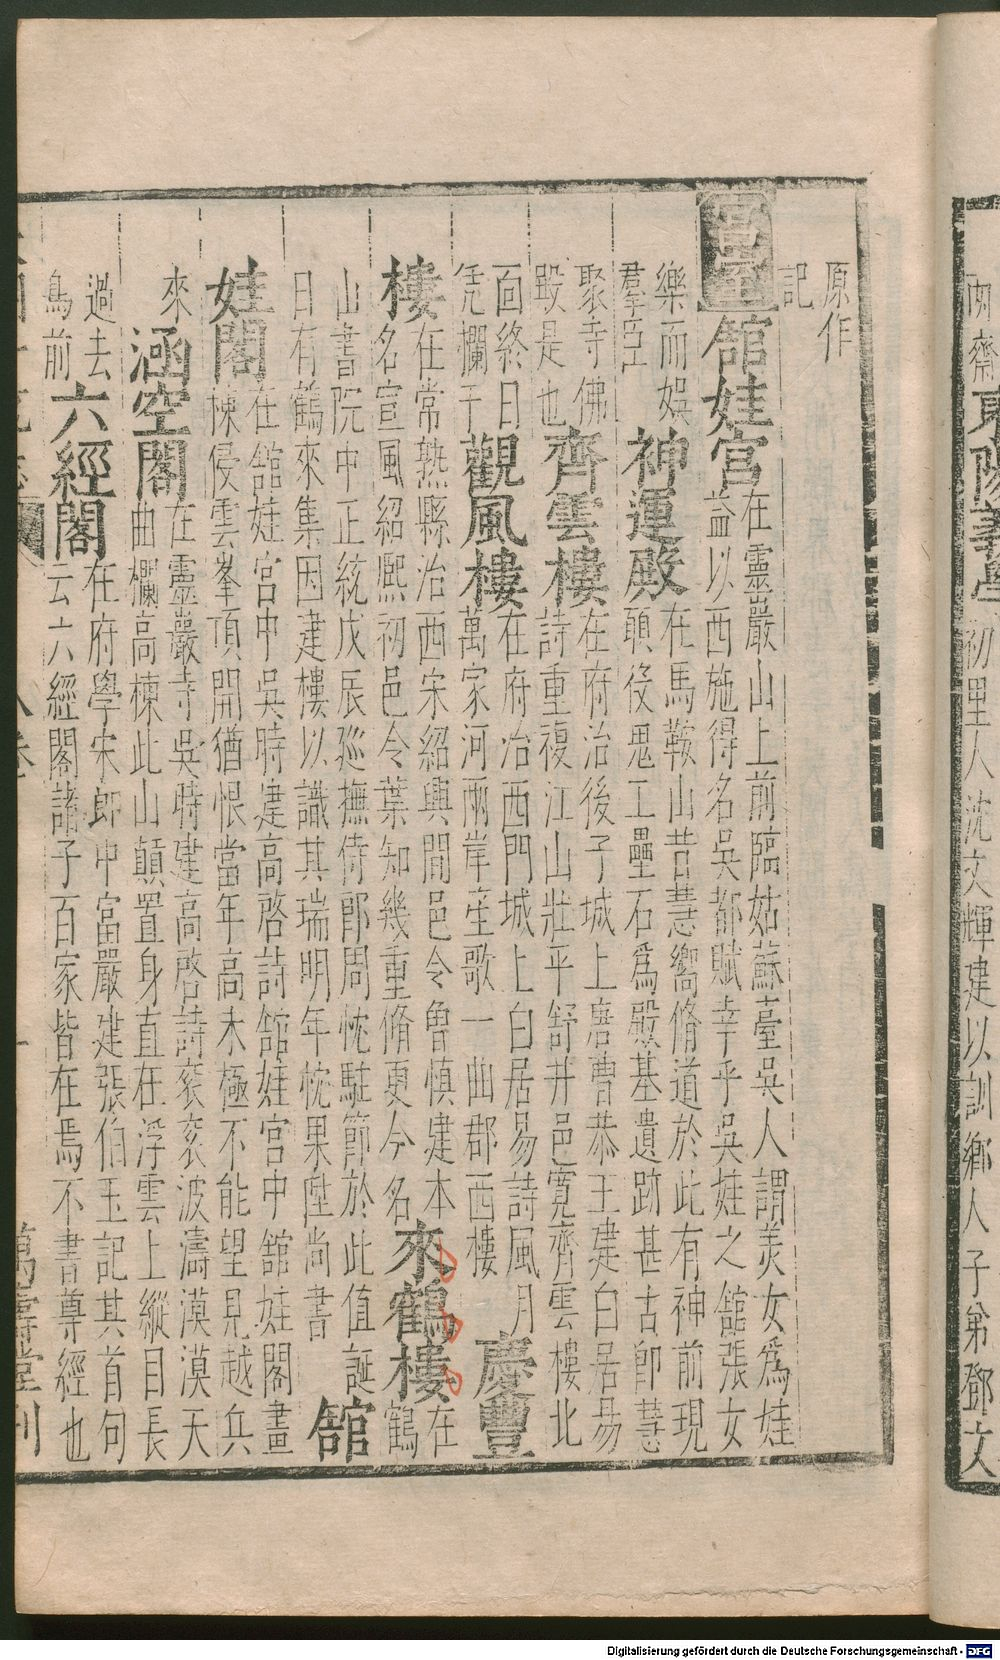 兩齋東陽義學初里人沈文輝建以訓鄉人子弟鄧文
原作
記
宮室
館娃宮
在靈巖山上前臨姑蘇臺吳人謂美女爲娃
蓋以西施得名吳都賦幸乎吳娃之館張女
樂而娛
羣臣
神運殿
在馬鞍山昔慧嚮脩道於此有神前現
願役鬼工壘石爲殿基遺跡甚古卽慧
聚寺佛
殿是也
齊雲樓
在府治後子城上唐曹恭王建白居易
詩重複江山壯平舒井邑寬齊雲樓北
面終日
凭欄干
觀風樓
在府治西門城上白居易詩風月
萬家河兩岸笙歌一曲郡西樓
慶豐
樓
在常熟縣治西宋紹興間邑令曾慎建本
名宣風紹熙初邑令葉知幾重脩更今名
來鶴樓
在
鶴
山書院中正統戊辰廵撫侍郎周忱駐節於此值誕
日有鶴來集因建樓以識其瑞明年忱果陞尚書
館
娃閣
在館娃宮中吳時建高啓詩館娃宮中館娃閣畫
棟侵雲峯頂開猶恨當年高未極不能望見越兵
來
涵空閣
在靈巖寺吳時建高啓詩袞袞波濤漠漠天
曲欄高棟此山顛置身直在浮雲上縱目長
過去
鳥前
六經閣
在府學宋郎中富嚴建張伯玉記其首句
云六經閣諸子百家皆在焉不書尊經也
八卷
萬壽堂刊
Digitalisierung gefördert durch die Deutsche Forschungsgemeinschaft - DFG